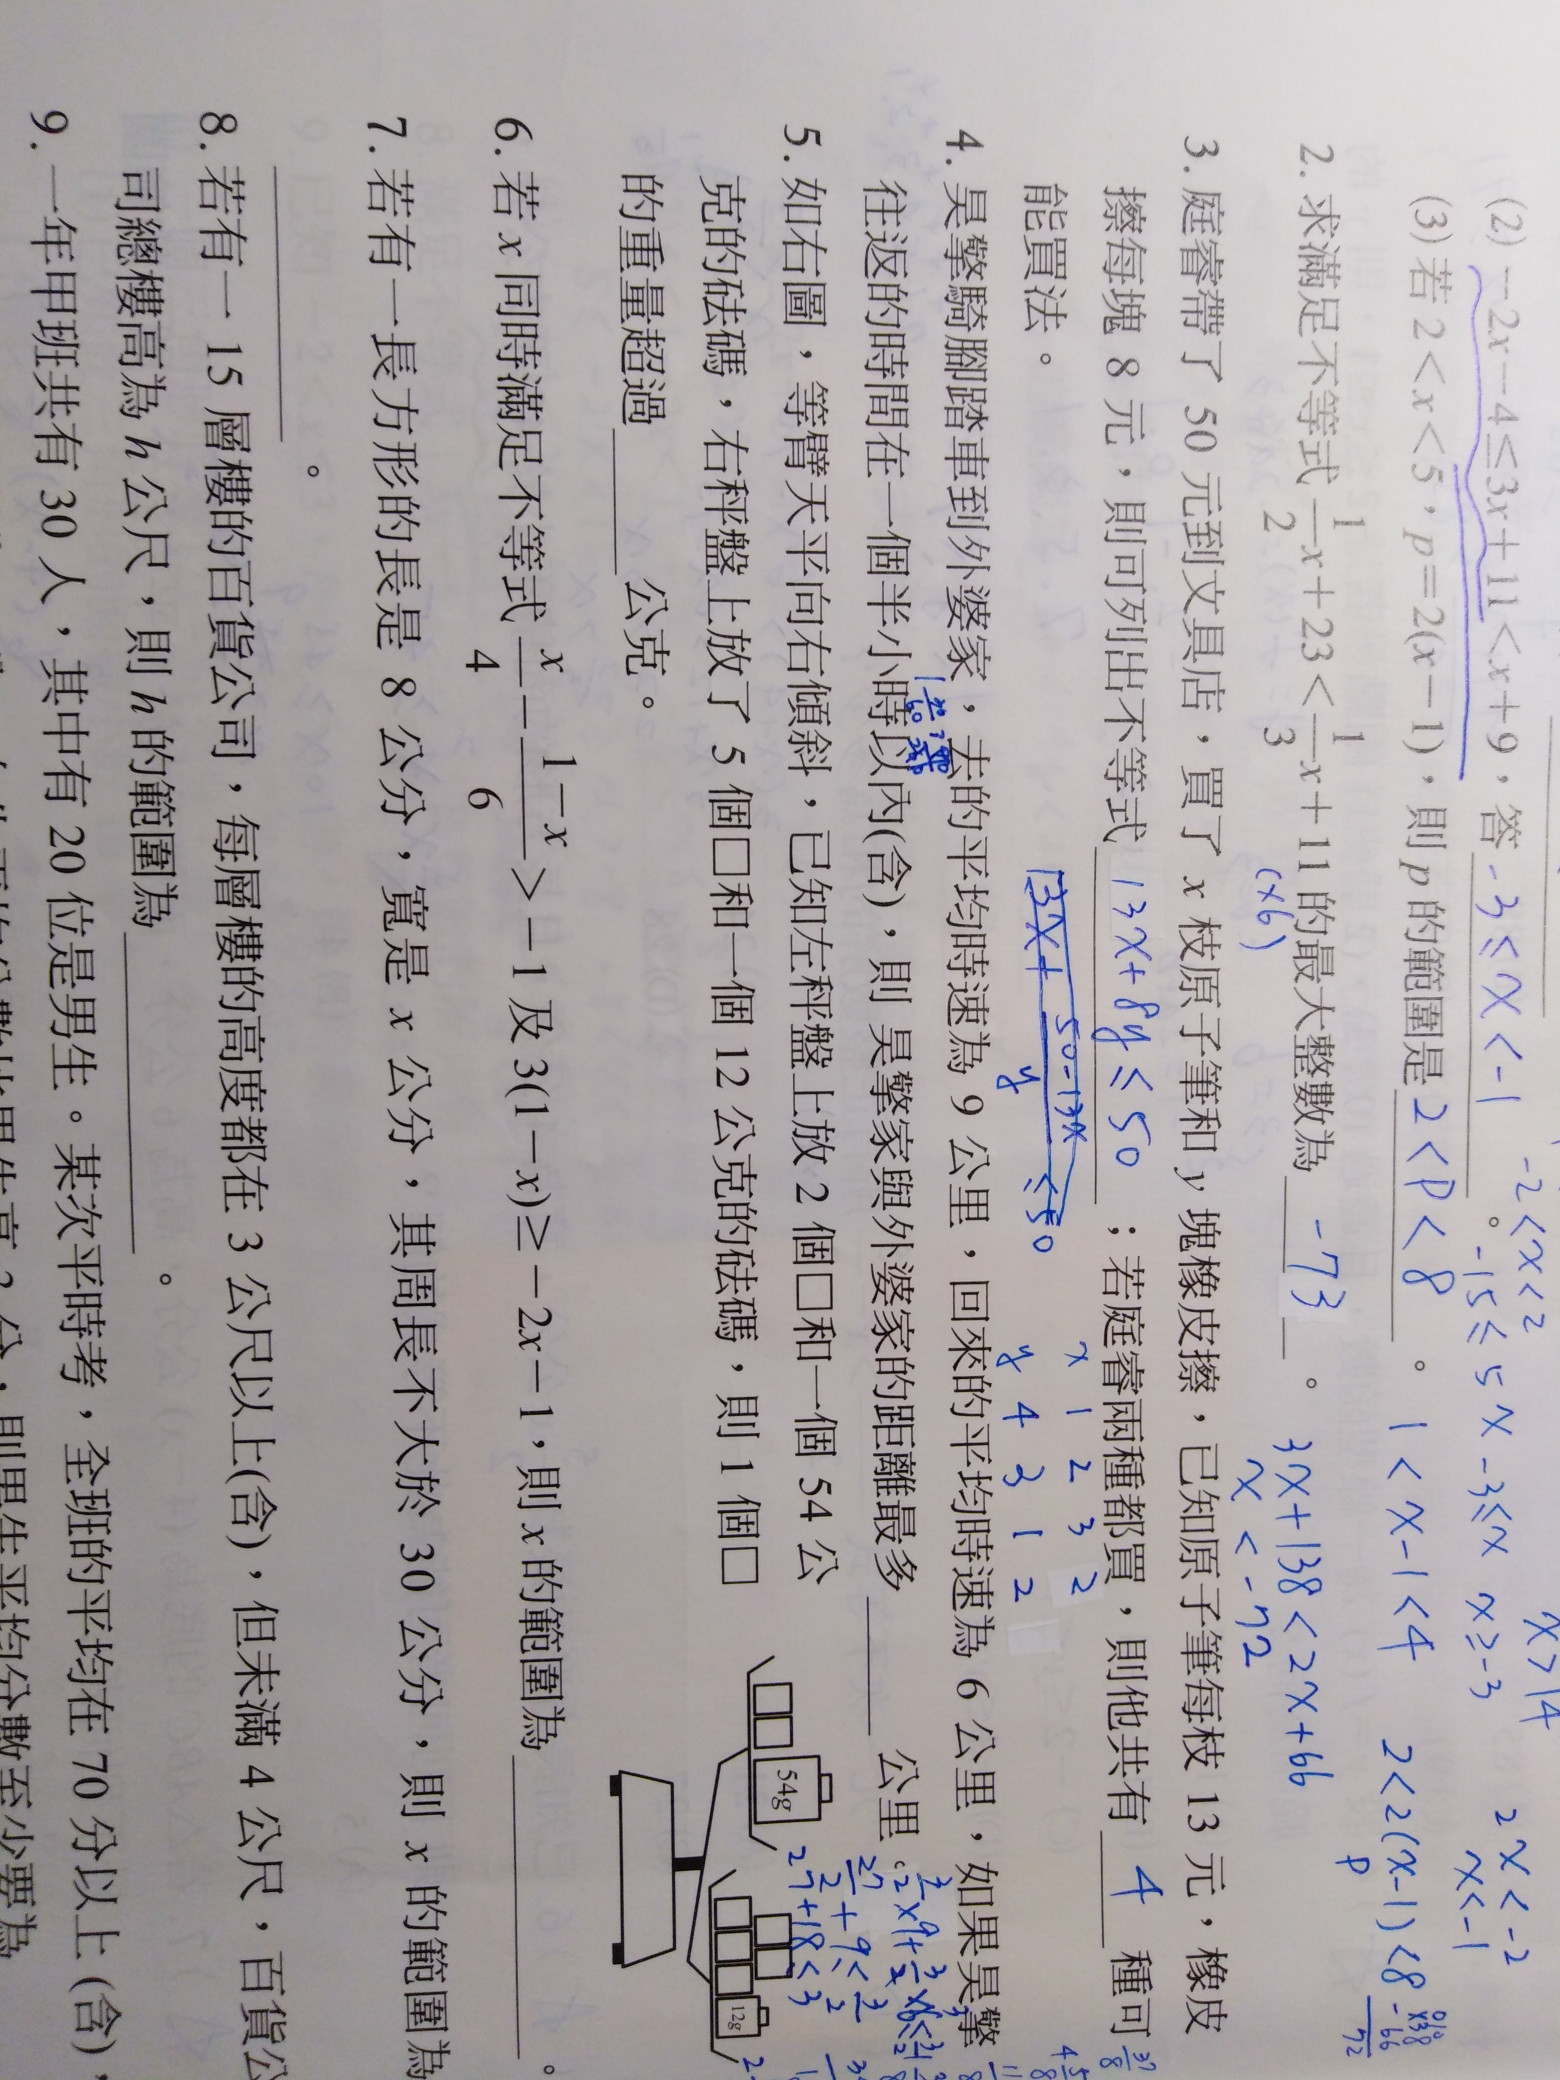 (2) －2x－4≤3x＋11＜x＋9，答 -3≤x<-1 。
(3) 若 2＜x＜5，p＝2(x－1)，則 p 的範圍是 2<P<8 。
2. 求滿足不等式 1/2 x＋23＜1/3 x＋11 的最大整數為 -73 。
3. 庭睿帶了 50 元到文具店，買了 x 枝原子筆和 y 塊橡皮擦，已知原子筆每枝 13 元，橡皮
擦每塊 8 元，則可列出不等式 13x+8y≤50 ；若庭睿兩種都買，則他共有 4 種可
能買法。
4. 昊擎騎腳踏車到外婆家，去的平均時速為 9 公里，回來的平均時速為 6 公里，如果昊擎
往返的時間在一個半小時以內(含)，則昊擎家與外婆家的距離最多 公里。
5. 如右圖，等臂天平向右傾斜，已知左秤盤上放 2 個□和一個 54 公
克的砝碼，右秤盤上放了 5 個□和一個 12 公克的砝碼，則 1 個□
的重量超過 公克。
6. 若 x 同時滿足不等式 x/4－(1－x)/6＞－1 及 3(1－x)≥－2x－1，則 x 的範圍為 。
7. 若有一長方形的長是 8 公分，寬是 x 公分，其周長不大於 30 公分，則 x 的範圍為
。
8. 若有一 15 層樓的百貨公司，每層樓的高度都在 3 公尺以上(含)，但未滿 4 公尺，百貨公
司總樓高為 h 公尺，則 h 的範圍為 。
9. 一年甲班共有 30 人，其中有 20 位是男生。某次平時考，全班的平均在 70 分以上 (含)，
則男生平均分數至少要為
x>14
2x<-2
x<-1
-2<x<2
-15≤5x -3≤x x≥-3
1<x-1<4 2<2(x-1)<8
P
(x6)
3x+138<2x+66
x<-72
x 1 2 3 2
y 4 3 1 2
54g
12g